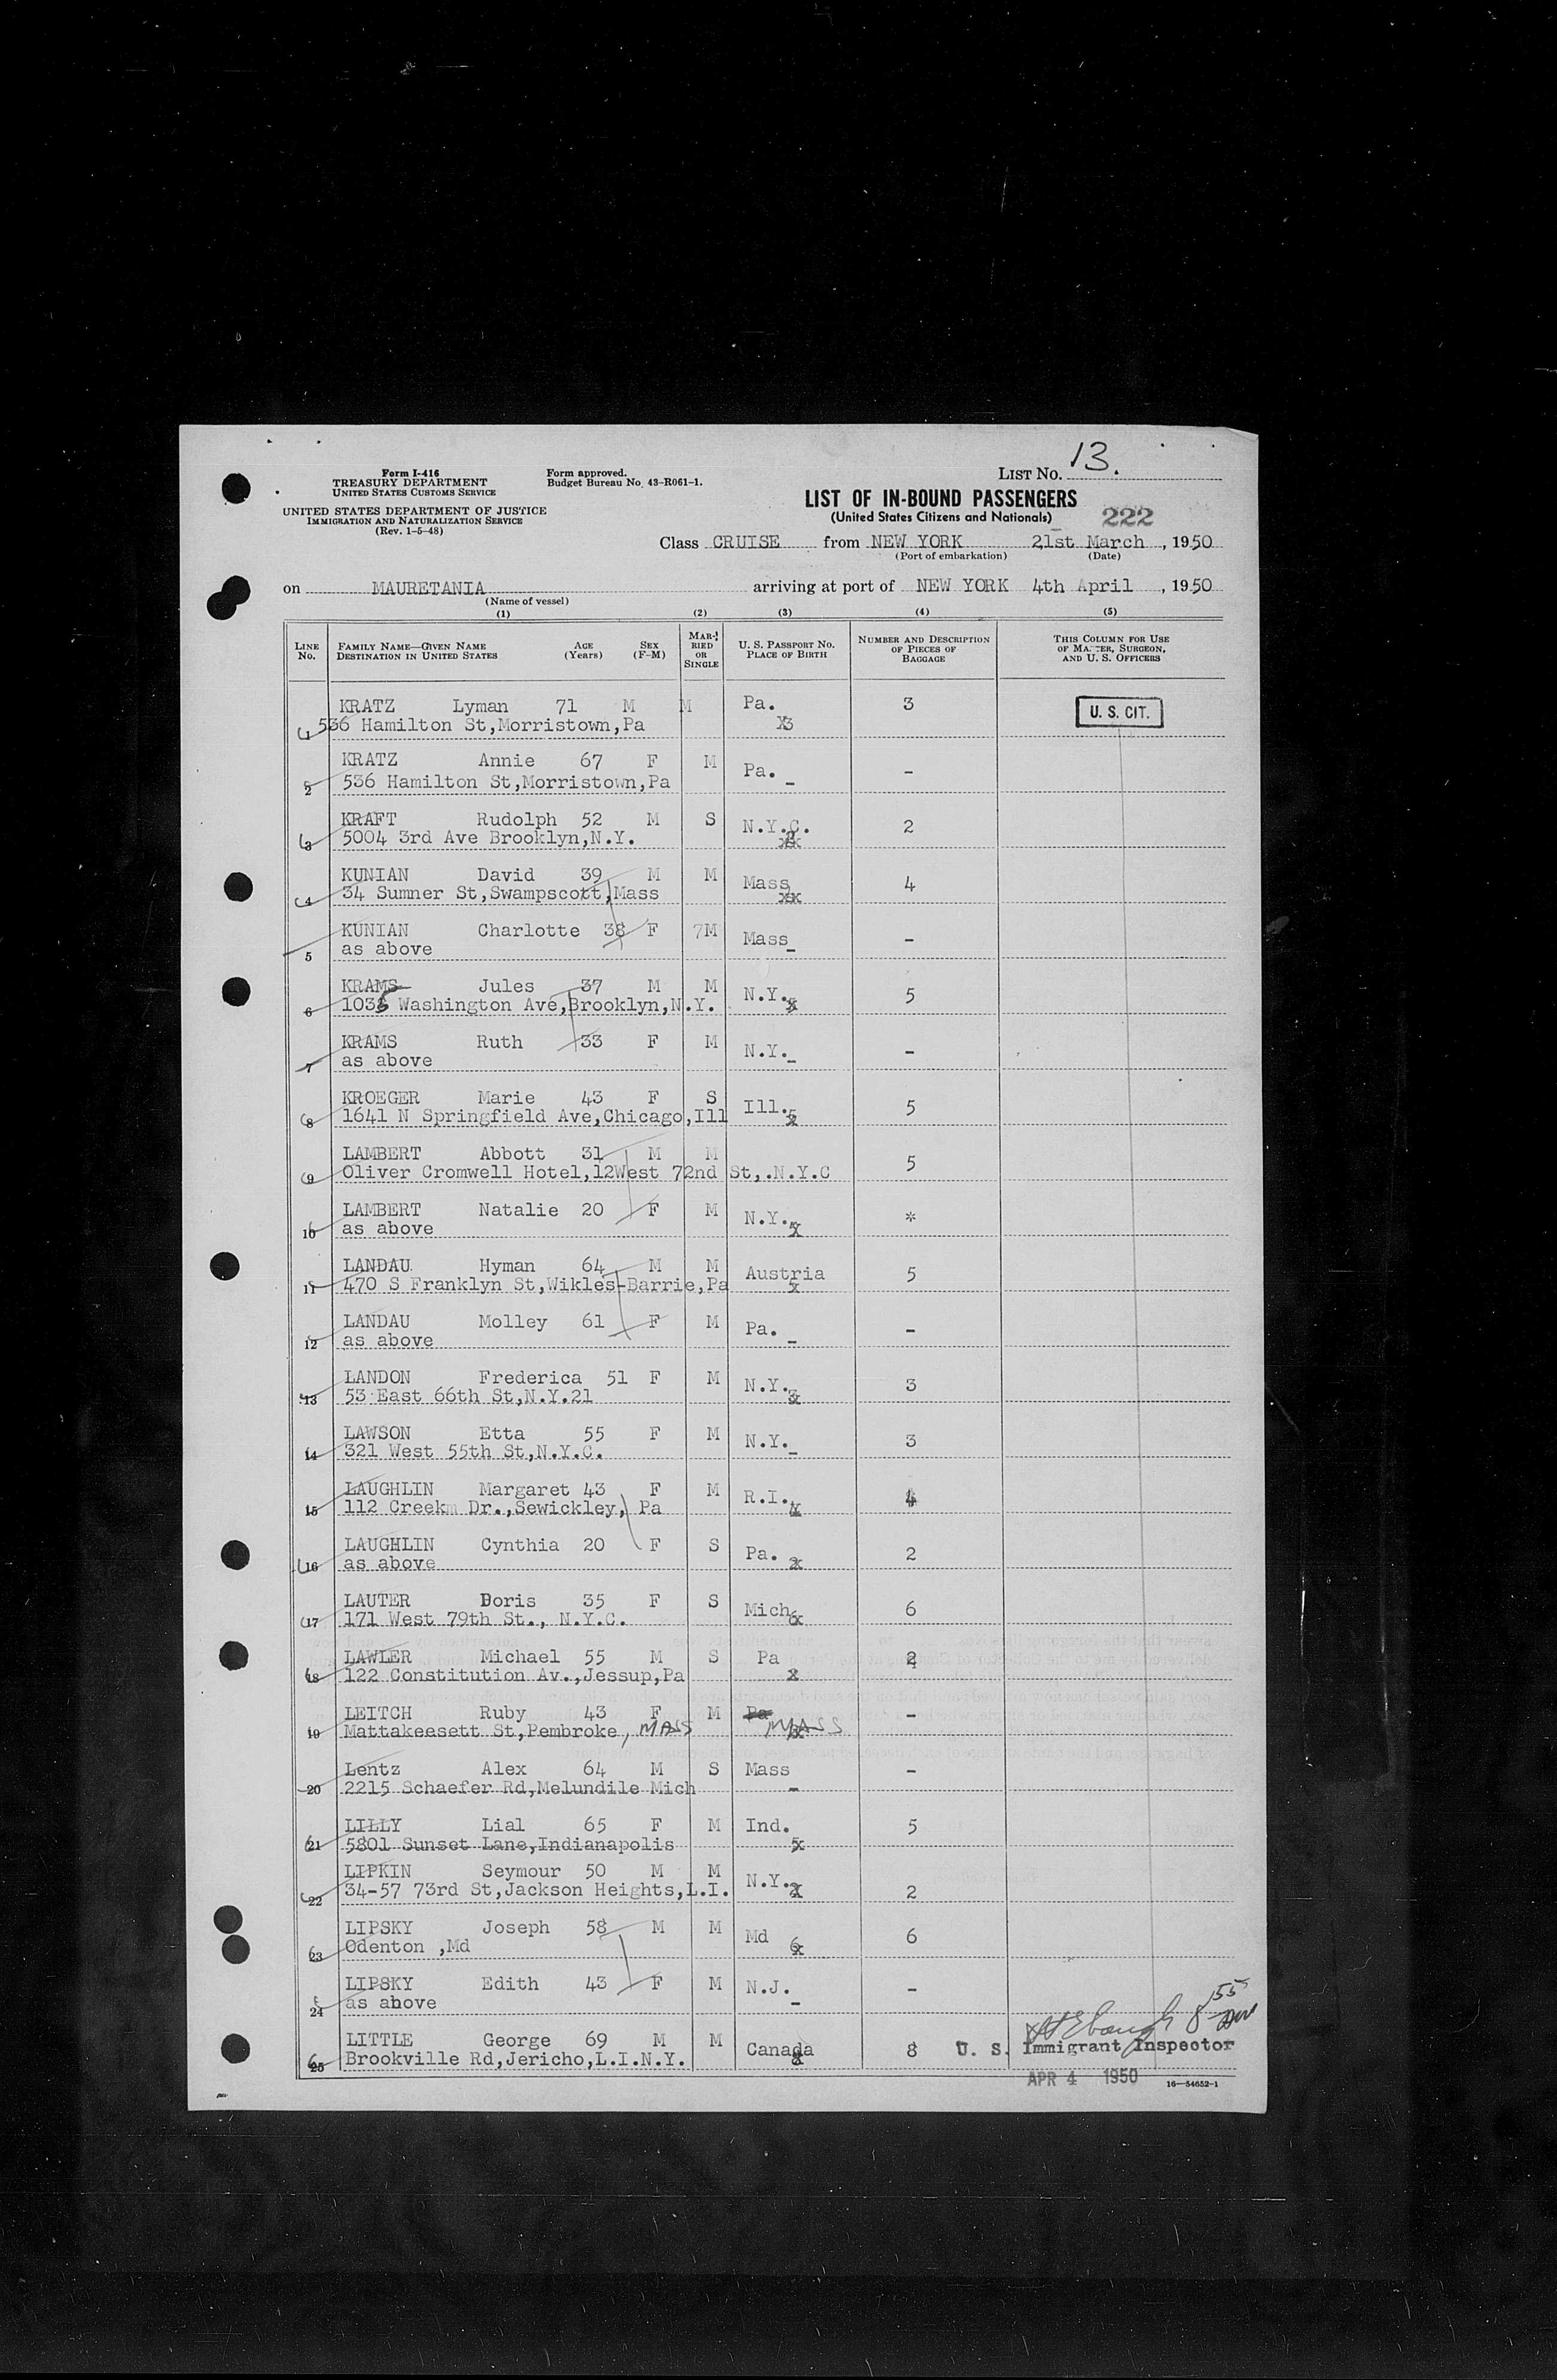 Form I-416
TREASURY DEPARTMENT
UNITED STATES CUSTOMS SERVICE
UNITED STATES DEPARTMENT OF JUSTICE
IMMIGRATION AND NATURALIZATION SERVICE
(Rev. 1-5-48)
Form approved.
Budget Bureau No. 43-R061-1.
LIST No. 13.
LIST OF IN-BOUND PASSENGERS
(United States Citizens and Nationals)
222
Class CRUISE from NEW YORK 21st March, 1950
(Port of embarkation) (Date)
on MAURETANIA arriving at port of NEW YORK 4th April, 1950
(Name of vessel)
(1) (2) (3) (4) (5)
LINE No. FAMILY NAME—GIVEN NAME DESTINATION IN UNITED STATES AGE (Years) SEX (F-M) MARRIED OR SINGLE U. S. PASSPORT NO. PLACE OF BIRTH NUMBER AND DESCRIPTION OF PIECES OF BAGGAGE THIS COLUMN FOR USE OF MASTER, SURGEON, AND U. S. OFFICERS
KRATZ Lyman 71 M M Pa. 3 U. S. CIT.
1 536 Hamilton St,Morristown,Pa X3
KRATZ Annie 67 F M Pa. -
2 536 Hamilton St,Morristown,Pa -
KRAFT Rudolph 52 M S N.Y.C. 2
3 5004 3rd Ave Brooklyn,N.Y.
KUNIAN David 39 M M Mass 4
4 34 Sumner St,Swampscott,Mass xx
KUNIAN Charlotte 38 F 7M Mass -
5 as above -
KRAMS Jules 37 M M N.Y. 5
6 1035 Washington Ave,Brooklyn,N.Y.
KRAMS Ruth 33 F M N.Y. -
7 as above -
KROEGER Marie 43 F S Ill. 5
8 1641 N Springfield Ave,Chicago,Ill
LAMBERT Abbott 31 M M 5
9 Oliver Cromwell Hotel,12West 72nd St,.N.Y.C
LAMBERT Natalie 20 F M N.Y. *
10 as above
LANDAU Hyman 64 M M Austria 5
11 470 S Franklyn St,Wikles-Barrie,Pa x
LANDAU Molley 61 F M Pa. -
12 as above -
LANDON Frederica 51 F M N.Y. 3
13 53 East 66th St,N.Y.21
LAWSON Etta 55 F M N.Y. 3
14 321 West 55th St,N.Y.C. -
LAUGHLIN Margaret 43 F M R.I. 4
15 112 Creekm Dr.,Sewickley, Pa
LAUGHLIN Cynthia 20 F S Pa. 2
16 as above
LAUTER Doris 35 F S Mich 6
17 171 West 79th St., N.Y.C.
LAWLER Michael 55 M S Pa 2
18 122 Constitution Av.,Jessup,Pa x
LEITCH Ruby 43 F M Pa -
19 Mattakeesett St,Pembroke, MASS MASS
Lentz Alex 64 M S Mass -
20 2215 Schaefer Rd,Melundile Mich -
LILLY Lial 65 F M Ind. 5
21 5801 Sunset Lane,Indianapolis
LIPKIN Seymour 50 M M N.Y. 2
22 34-57 73rd St,Jackson Heights,L.I.
LIPSKY Joseph 58 M M Md 6
23 Odenton ,Md
LIPSKY Edith 43 F M N.J. -
24 as above -
LITTLE George 69 M M Canada 8 U. S. Immigrant Inspector
25 Brookville Rd,Jericho,L.I.N.Y.
APR 4 1950
16—54652-1